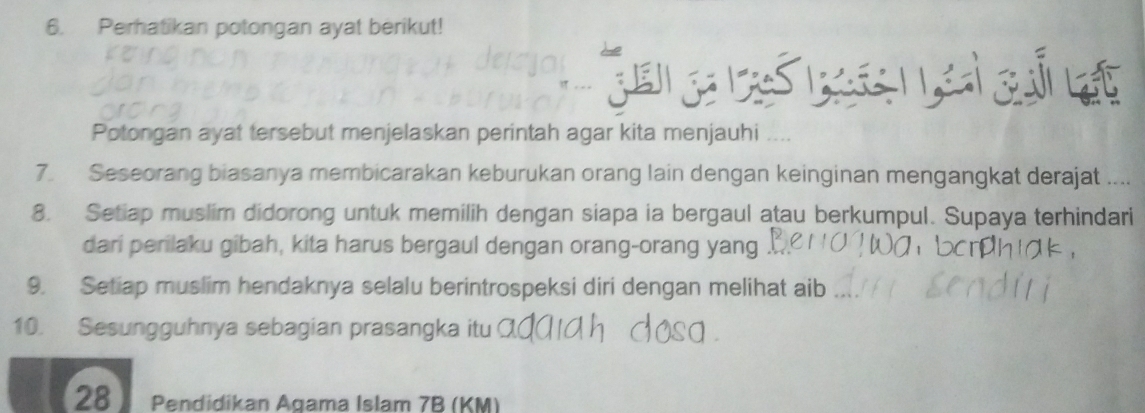 6. Perhatikan potongan ayat berikut!
يَٰٓأَيُّهَا ٱلَّذِينَ ءَامَنُوا۟ ٱجْتَنِبُوا۟ كَثِيرًا مِّنَ ٱلظَّنِّ ...
Potongan ayat tersebut menjelaskan perintah agar kita menjauhi ....
7. Seseorang biasanya membicarakan keburukan orang lain dengan keinginan mengangkat derajat ....
8. Setiap muslim didorong untuk memilih dengan siapa ia bergaul atau berkumpul. Supaya terhindari
dari perilaku gibah, kita harus bergaul dengan orang-orang yang ....
9. Setiap muslim hendaknya selalu berintrospeksi diri dengan melihat aib .... diri sendiri
10. Sesungguhnya sebagian prasangka itu adalah dosa.
28 Pendidikan Agama Islam 7B (KM)